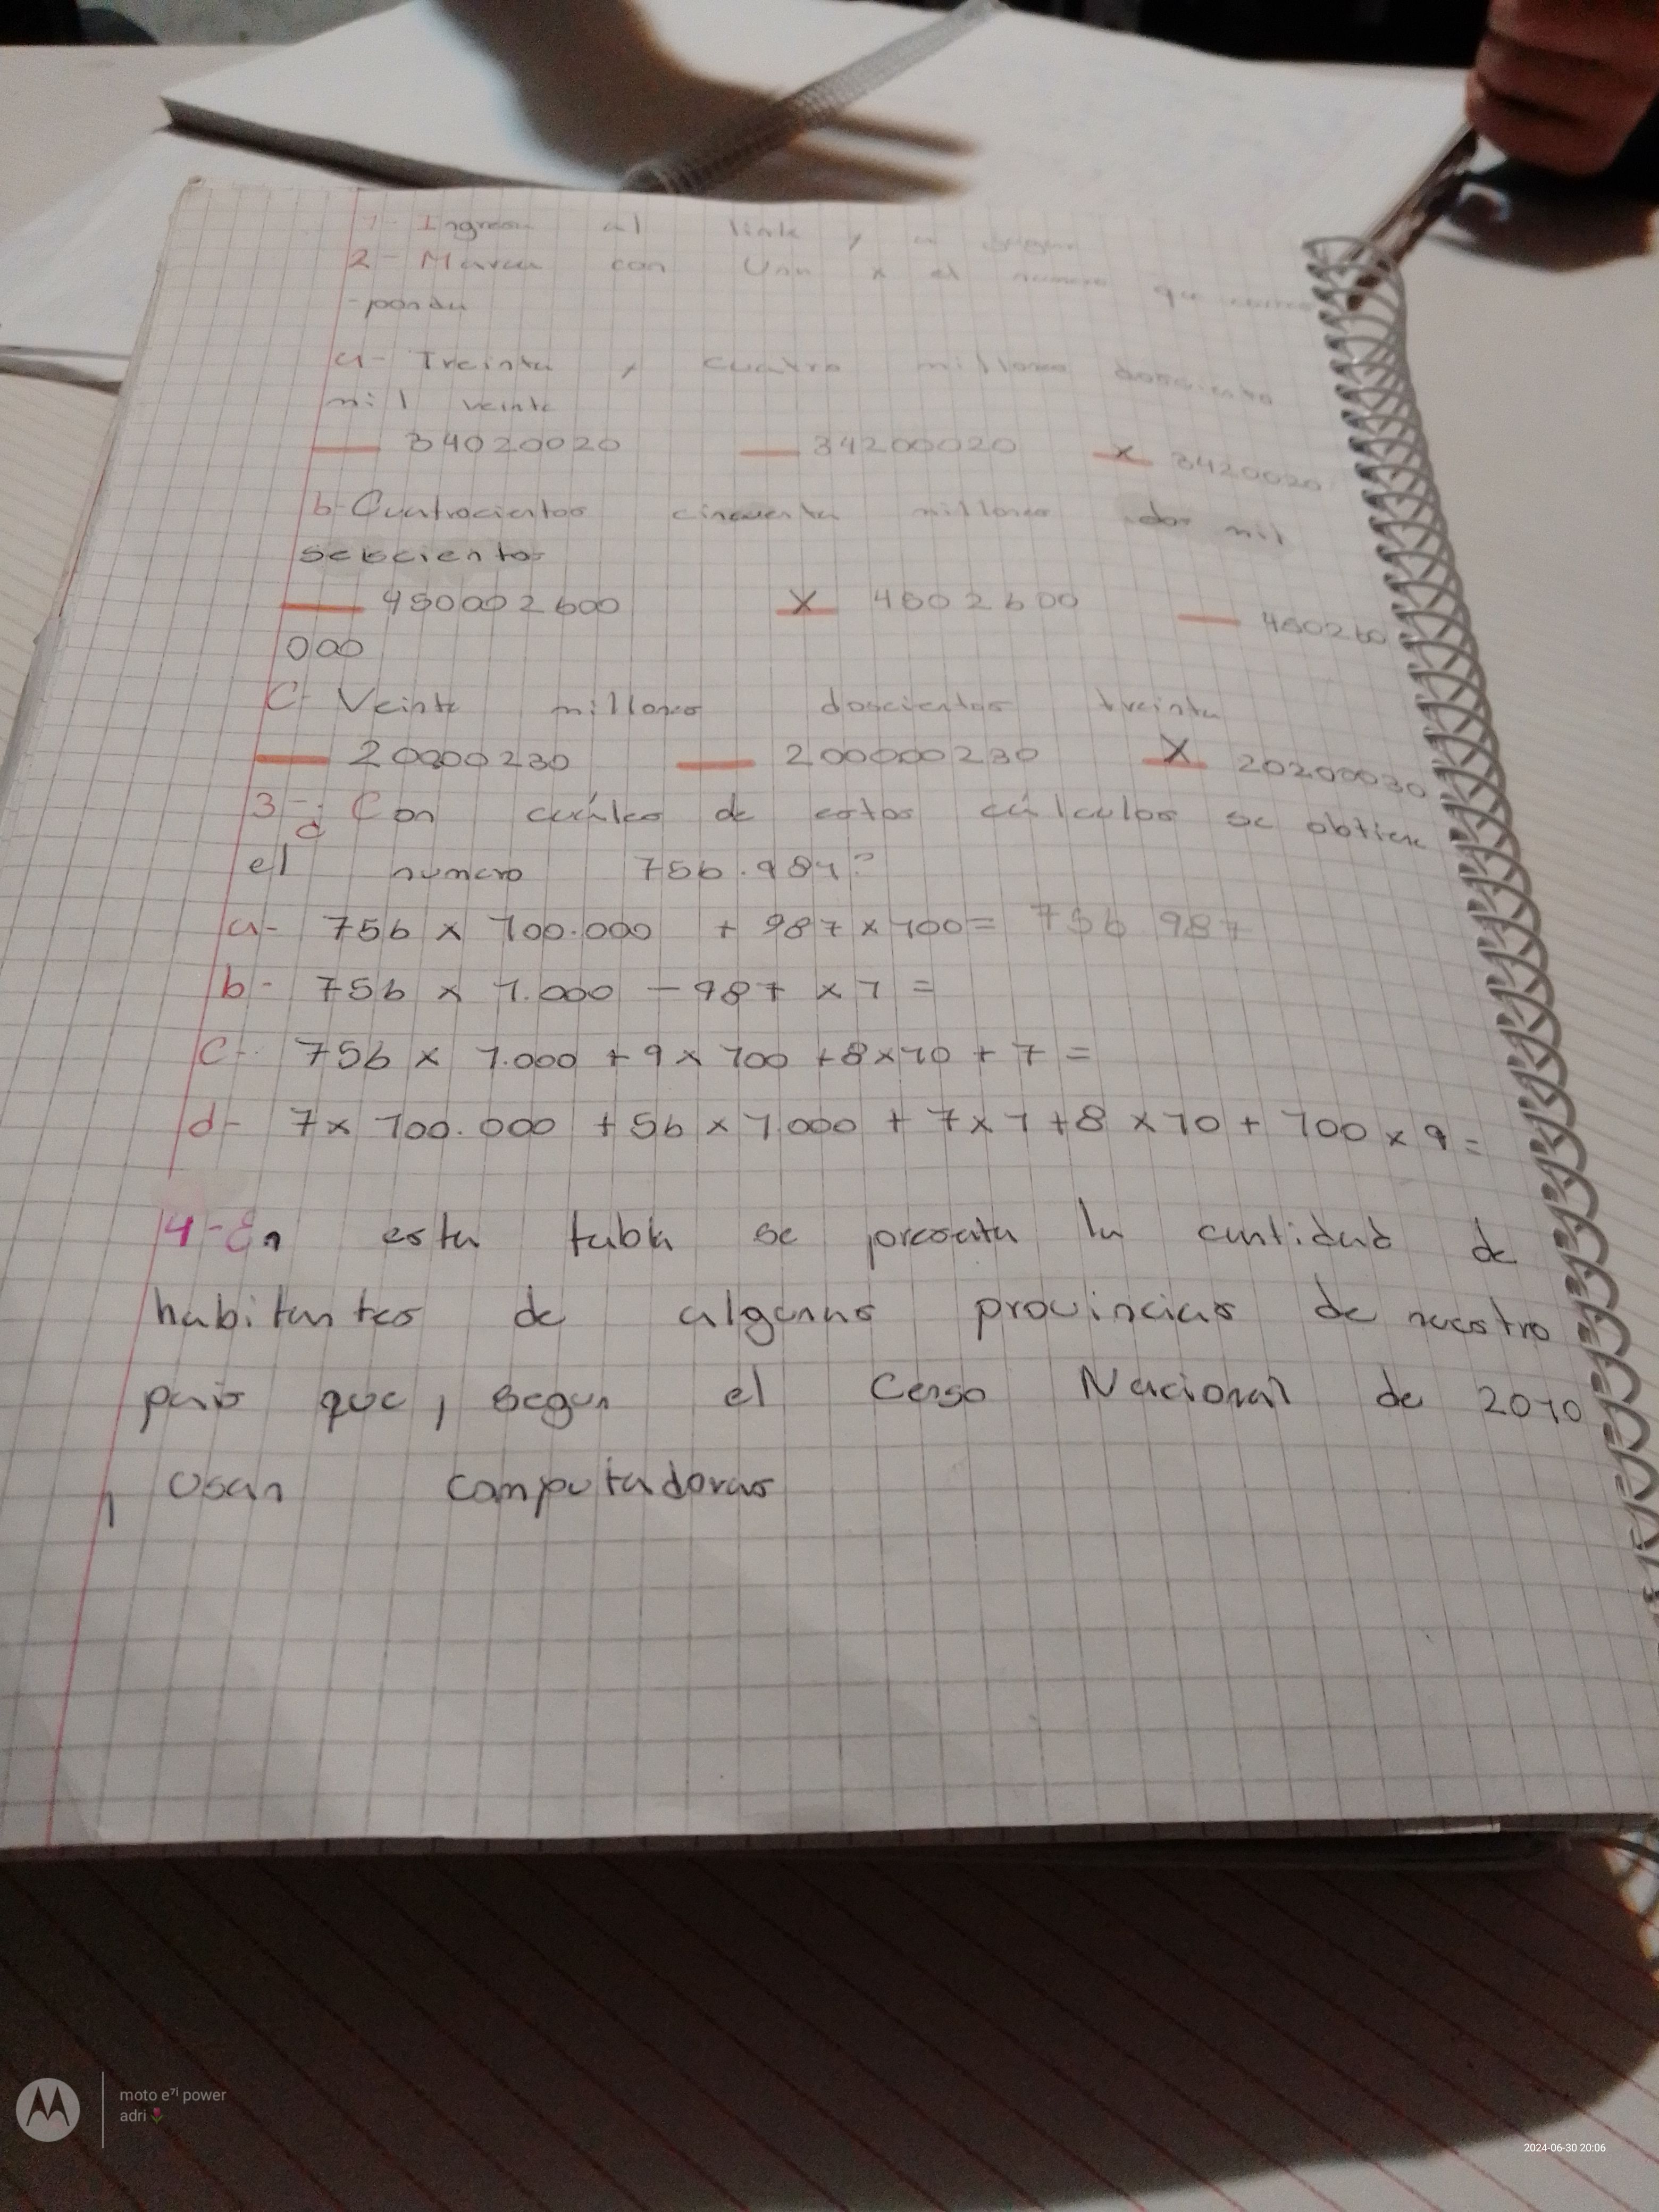 1- Ingresa al link y a jugar
2- Marca con Una x el numero que
-ponda
a- Treinta y cuatro millones doscientos
mil veinte
34020020 34200020 x 3420020
b- Cuatrocientos cincuenta millones dos mil
seiscientos
450002600 X 4502600 450260
000
C- Veinte millones doscientos treinta
20000230 200000230 X 20200030
3- ¿Con cuáles de estos cálculos se obtiene
el numero 756.987?
a- 756 x 100.000 + 987 x 100 = 756 987
b- 756 x 1.000 - 987 x 1 =
C- 756 x 1.000 + 9 x 100 + 8 x 10 + 7 =
d- 7 x 100.000 + 56 x 1.000 + 7 x 1 + 8 x 10 + 100 x 9 =
4- En esta tabla se presenta la cantidad de
habitantes de algunas provincias de nuestro
pais que, segun el Censo Nacional de 2010
, usan computadoras
moto e⁷ⁱ power
adri🌷
2024-06-30 20:06